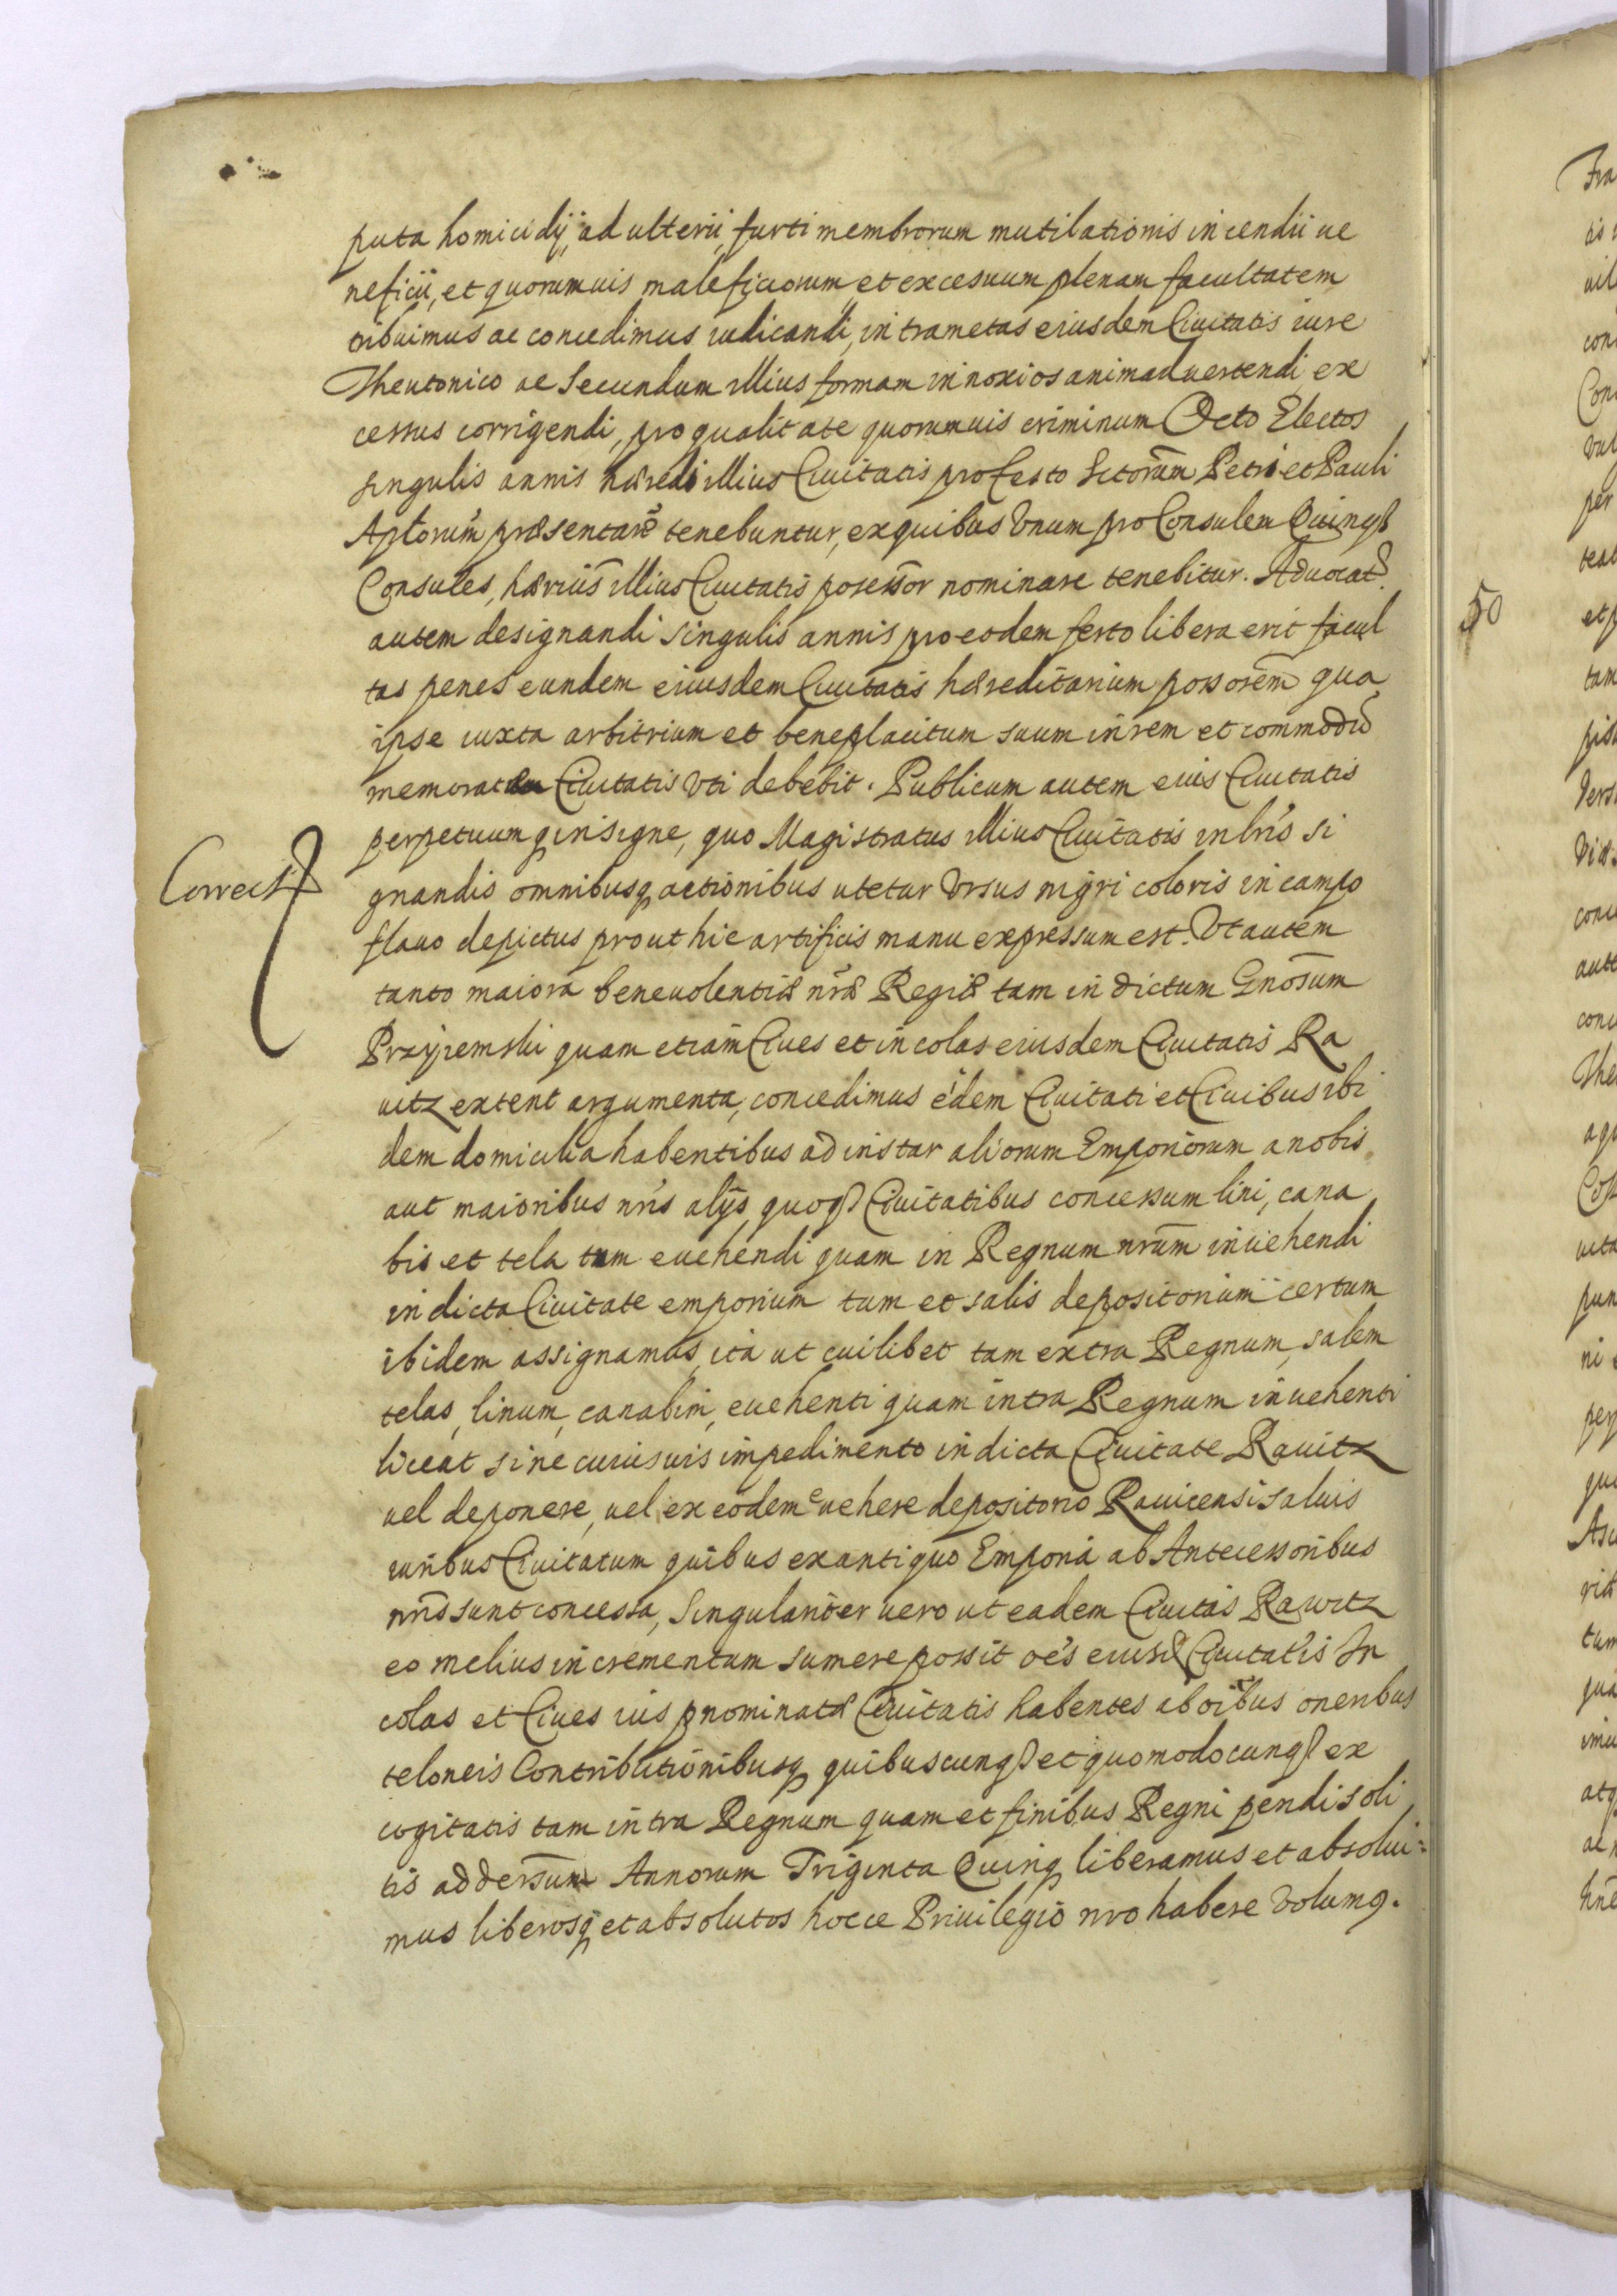 puta homicidÿ, adulterii, furti membrorum mutilationis incendii ue
neficii, et quorumuis maleficiorum et excessuum plenam facultatem
tribuimus ac concedimus iudicandi, intra metas eiusdem Ciuitatis iure
Theutonico ac Secundum illius formam in noxios animaduertendi ex
cessus corrigendi, pro qualitate quorumuis criminum Octo Electos
singulis annis hæredi illius Ciuitatis pro festo Sctorum Petri et Pauli
Aplorum præsentare tenebuntur, ex quibus Vnum pro Consulem Quinqȝ
Consules, hærius illius Ciuitatis possessor nominare tenebitur. Aduocat
autem designandi singulis annis pro eodem festo libera erit facul
tas penes eundem eiusdem Ciuitatis hæreditarium possorem qua
ipse iuxta arbitrium et beneplacitum suum in rem et commodū
memoratæ Ciuitatis Vti debebit. Publicum autem eius Ciuitatis
perpetuumq insigne, quo Magistratus illius Ciuitatis in lris si
Correct
gnandis omnibusq actionibus utetur Vrsus nigri coloris in campo
flauo depictus prout hic artificis manu expressum est. Vt autem
tanto maiora beneuolentiæ nræ Regiæ tam in dictum Gnosum
Przyiemski quam etiam Ciues et incolas eiusdem Ciuitatis Ra
uitz extent argumenta, concedimus eidem Ciuitati et Ciuibus ibi
dem domicilia habentibus ad instar aliorum Emporiorum a nobis
aut maioribus nris alÿs quoqȝ Ciuitatibus concessum lini, cana
bis et tela tam euehendi quam in Regnum nrum inuehendi
in dicta Ciuitate emporium tum et salis depositorium certum
ibidem assignamus, ita ut cuilibet tam extra Regnum, salem
telas, linum, canabim, euehenti quam intra Regnum inuehenti
liceat sine cuiusuis impedimento in dicta Ciuitate Rauitz
uel deponere, uel ex eodem euehere depositorio Rauicensi saluis
iuribus Ciuitatum quibus ex antiquo Emporia ab Antecessoribus
nris sunt concessa, Singulariter uero ut eadem Ciuitas Rawitz
eo melius incrementum sumere possit oēs eiusd Ciuitatis In
colas et Ciues ius pnominatæ Ciuitatis habentes ab oibus oneribus
teloneis Contributionibusq quibuscunqȝ et quomodocunqȝ ex
cogitatis tam intra Regnum quam et finibus Regni pendi soli
tis ad dersum Annorum Triginta Quinq liberamus et absolui=
mus liberosq et absolutos hocce Priuilegio nro habere Volumꝰ.
50